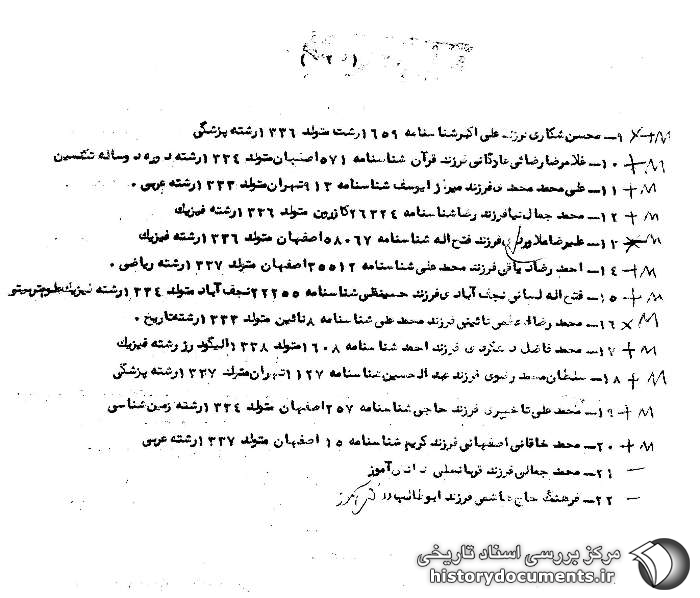 (۲)
۹ــ محسن شکاری فرزند علی اکبر شناسنامه ۱۶۵۹ رشت متولد ۱۳۳۶ رشته پزشگی
۱۰ــ غلامرضا رضائی عادگانی فرزند قرآن شناسنامه ۵۷۱ اصفهان متولد ۱۳۳۴ رشته دوره د وساله تکنسین
۱۱ــ علی محمد محمدی فرزند میرزا ابوسف شناسنامه ۹۱۳ تهران متولد ۱۳۳۳ رشته عربی ۰
۱۲ــ محمد جمال نیا فرزند رضا شناسنامه ۲۶۳۲۴ کازرون متولد ۱۳۳۶ رشته فیزیك
۱۳ــ علیرضا فرزند فتح اله شناسنامه ۵۸۰۶۷ اصفهان متولد ۱۳۳۶ رشته فیزیك
۱۴ــ احمد رضا فرزند محمد علی شناسنامه ۳۵۵۱۲ اصفهان متولد ۱۳۳۷ رشته ریاضی ۰
۱۵ــ فتح اله لسانی نجف آبادی فرزند حسینعلی شناسنامه ۲۲۲۵۵ نجف آباد متولد ۱۳۳۴ رشته فیزیك
۱۶ــ محمد رضا نائینی فرزند محمد علی شناسنامه ۸ نائین متولد ۱۳۳۳ رشته تاریخ ۰
۱۷ــ محمد فاضل فرزند احمد شناسنامه ۱۶۰۸ متولد ۱۳۳۸ الیگودرز رشته فیزیك
۱۸ــ سلطان محمد رضوی فرزند عبدالحسین شناسنامه ۱۱۲۷ تهران متولد ۱۳۳۷ رشته پزشگی
۱۹ــ محمد علی تاخیری فرزند حاجی شناسنامه ۲۵۷ اصفهان متولد ۱۳۳۴ رشته زمین شناسی
۲۰ــ محمد خاقانی اصفهانی فرزند کریم شناسنامه ۱۵ اصفهان متولد ۱۳۳۷ رشته عربی
۲۱ــ محمد جمالی فرزند قربانعلی دانش آموز
۲۲ــ فرهنگ حاج هاشمی فرزند ابوطالب دانش آموز
مرکز بررسی اسناد تاریخی
historydocuments.ir